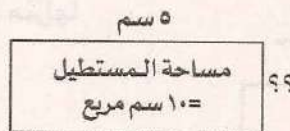 ٥ سم
مساحة المستطيل
=١٠ سم مربع
؟؟